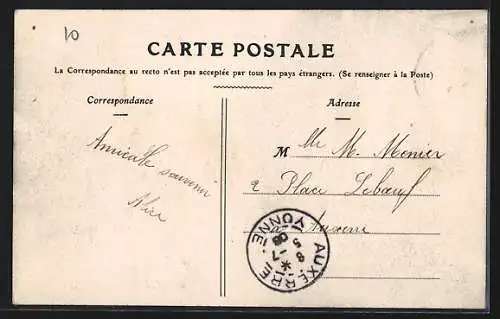 10
CARTE POSTALE
La Correspondance au recto n'est pas acceptée par tous les pays étrangers. (Se renseigner à la Poste)
Correspondance
Adresse
Amicale souvenir
Alice
M lle M. Monier
2 Place Lebœuf
à Auxerre
AUXERRE
YONNE